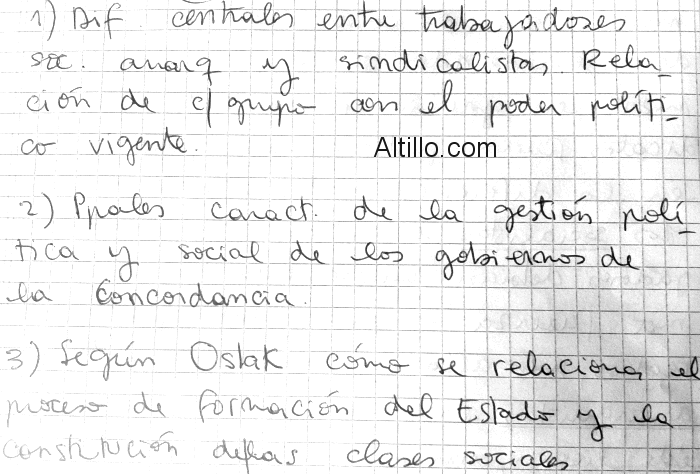 1) Dif centrales entre trabajadores
soc. anarq y sindicalistas. Rela_
ción de c/ grupo con el poder políti_
co vigente.
Altillo.com
2) Ppales caract. de la gestión polí_
tica y social de los gobiernos de
la Concordancia.
3) Según Oslak cómo se relaciona el
proceso de formación del Estado y la
constitución de las clases sociales